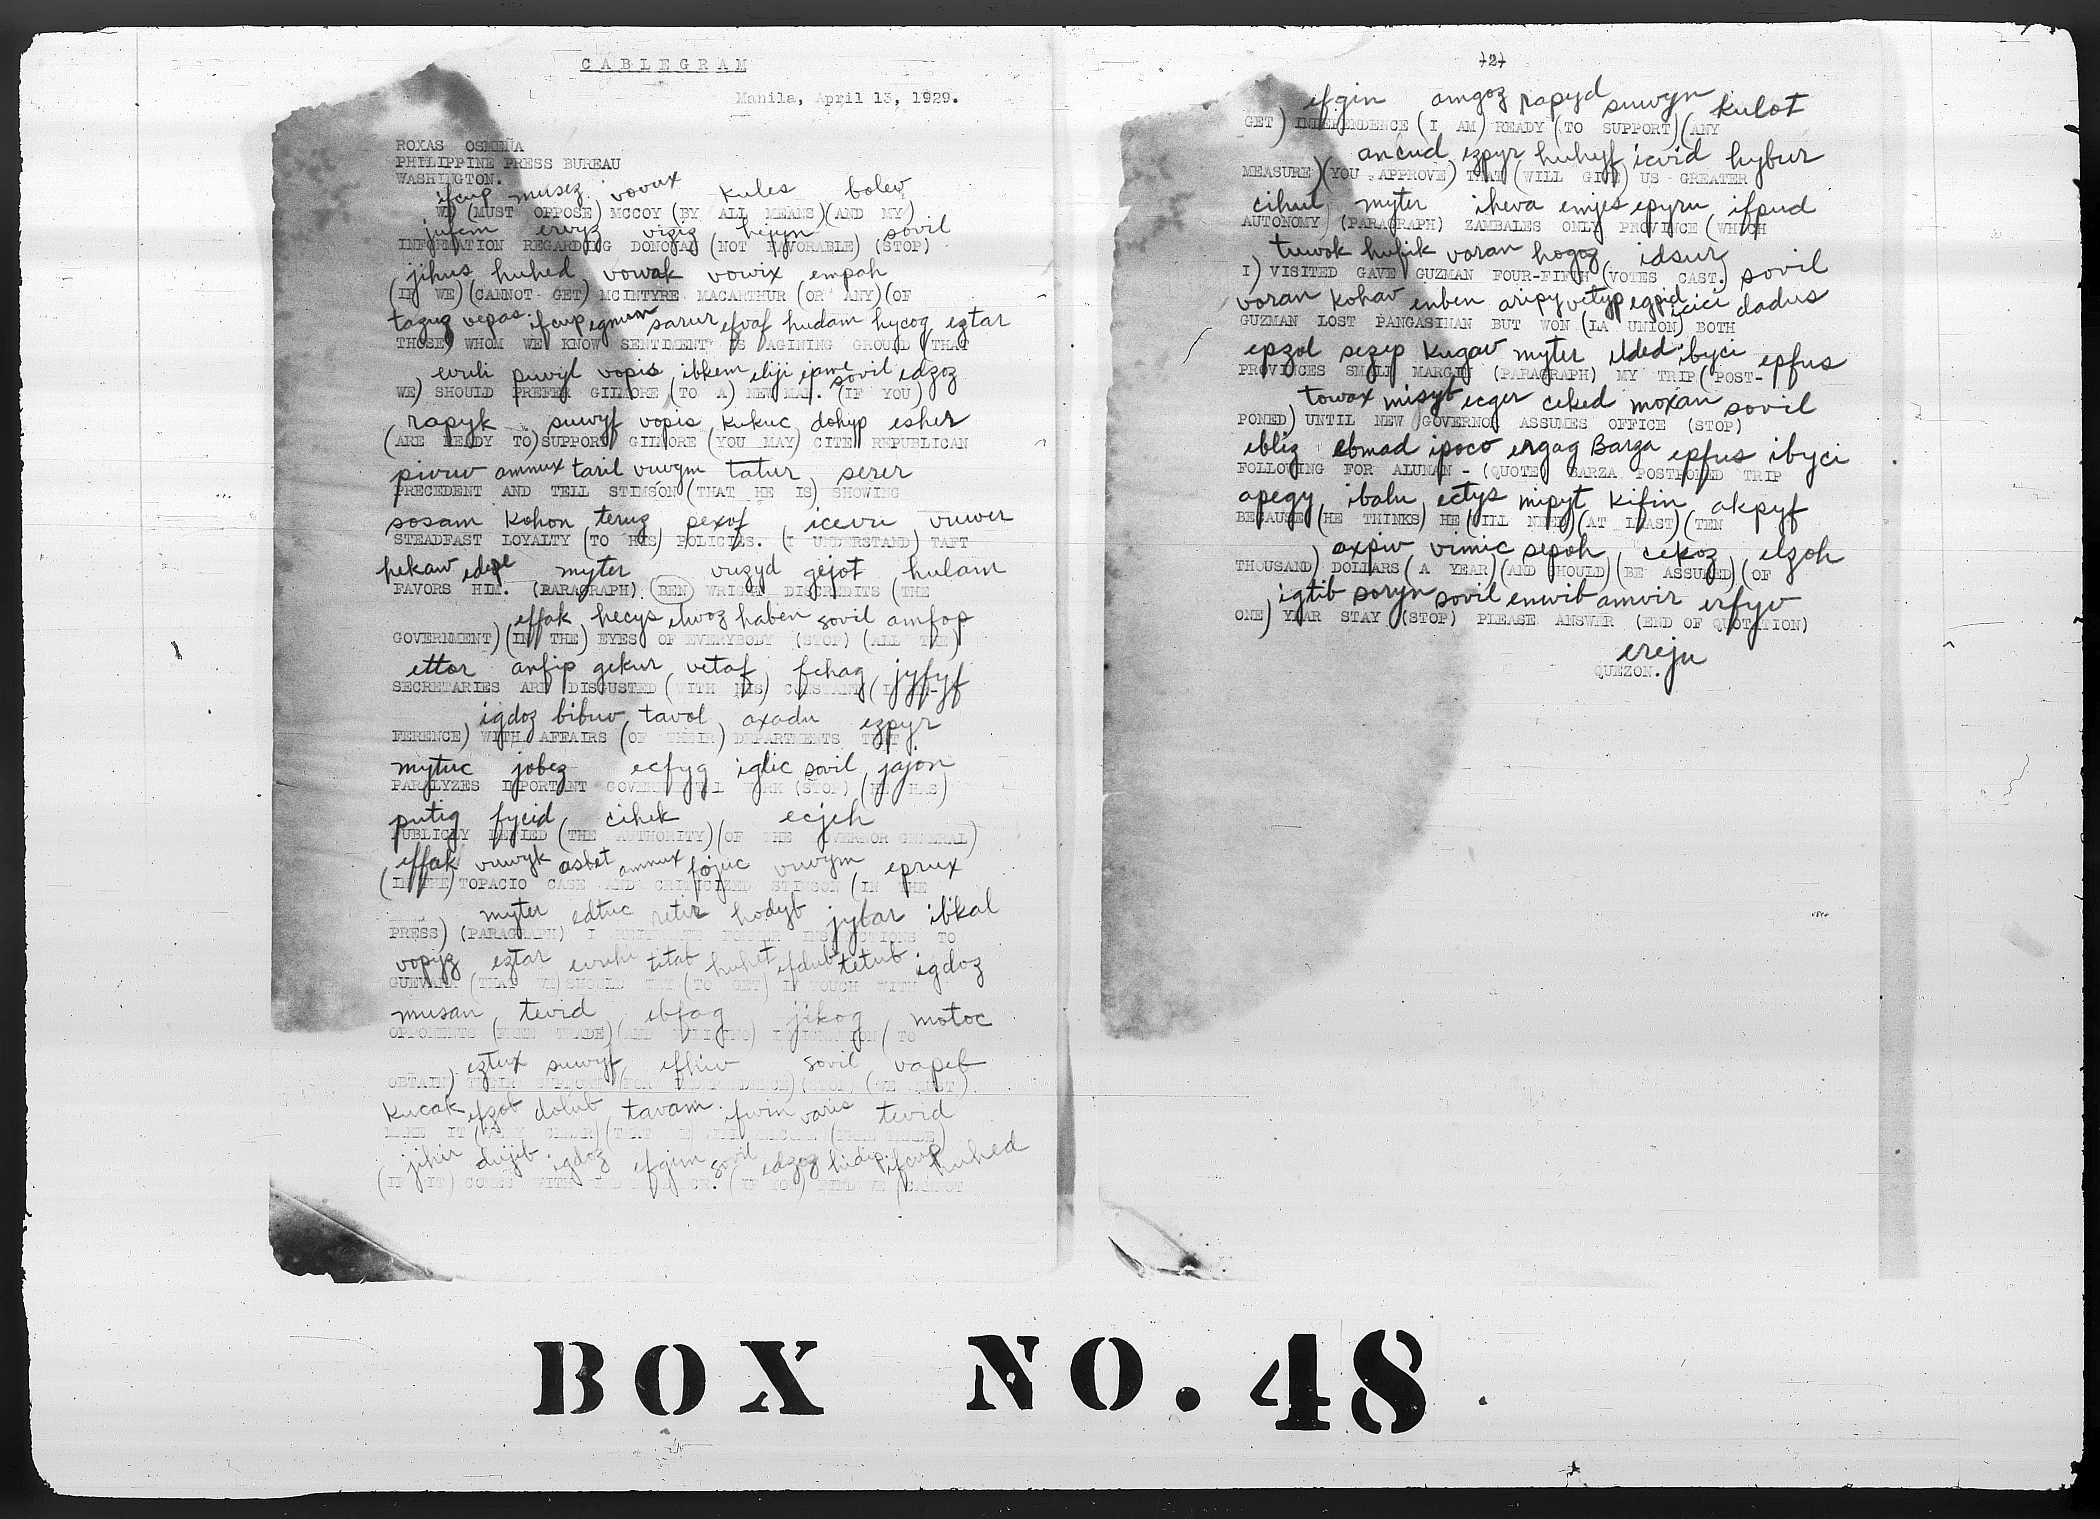 CABLEGRAM
Manila, April 13, 1929.
ROXAS OSMEÑA
PHILIPPINE PRESS BUREAU
WASHINGTON.
ifcup musez vovux kules bolew
WE) (MUST OPPOSE) MCCOY (BY ALL MEANS)(AND MY)
jufem ervyz vigig hejyn sovil
INFORMATION REGARDING DONOVAN (NOT FAVORABLE) (STOP)
jihus huhed vowak vowix empah
(IF WE) (CANNOT GET) MCINTYRE MACARTHUR (OR ANY)(OF
tazuz vepas ifcup egmum sarur efvaf hudam hycog eztar
THOSE) WHOM WE KNOW SENTIMENT IS AGINING GROUND THAT
evuli puvyl vopis ibkem eliji epme sovil edzoz
WE) SHOULD PREFER GILMORE (TO A) NEW MAN. (IF YOU)
rapyk suwyf vopis kukuc dohyp esher
(ARE READY TO) SUPPORT GILMORE (YOU MAY) CITE REPUBLICAN
pivuv ammux taril vuvym tatur serer
PRECEDENT AND TELL STIMSON (THAT HE IS) SHOWING
sosam kohon teruz pexof icevu vuwer
STEADFAST LOYALTY (TO HIS) POLICIES. (I UNDERSTAND) TAFT
hekaw edepe myter vuzyd gejot hulam
FAVORS HIM. (PARAGRAPH) (BEN) WRIGHT DISCREDITS (THE
effak hecys elwoz haben sovil amfop
GOVERNMENT) (IN THE) EYES OF EVERYBODY (STOP) (ALL THE)
ettor anfip gekur vetaf fehag jyfyf
SECRETARIES ARE DISGUSTED (WITH HIS) CONSTANT (INTER-
igdoz bibuv tavol axadu ezpyr
FERENCE) WITH AFFAIRS (OF THEIR) DEPARTMENTS THAT
mytuc jobez ecfyg iglic sovil jajon
PARALYZES IMPORTANT GOVERNMENTAL WORK (STOP) (HE HAS)
putig fycid cihek ecjeh
PUBLICLY DENIED (THE AUTHORITY)(OF THE GOVERNOR GENERAL)
effak vuwyk asbet ammux fojuc vuvym eprux
(IN THE) TOPACIO CASE AND CRITICIZED STIMSON (IN THE
myter edtuc retir hodyb jybar ibkal
PRESS) (PARAGRAPH) I REITERATE FORMER INSTRUCTIONS TO
vopyz eztar evuhi titab huhet efdub tetub igdoz
GUEVARA (THAT WE) SHOULD TRY (TO GET) IN TOUCH WITH
musan tevid ebfag jikog motoc
OPPONENTS (FREE TRADE) (AND FILIPINO) IMMIGRATION (TO
eztux suwyf effiw sovil vapeb
OBTAIN) THEIR SUPPORT (FOR INDEPENDENCE) (STOP) (WE MUST)
kucak efzob dolub tavam ifwin varis tevid
MAKE IT (VERY CLEAR) (THAT WE) WILL DISCUSS (FREE TRADE)
jihir dujib igdoz efgim sovil edzoz hidip ifcup huhed
(IF IT) COMES WITH INDEPENDENCE. (IF YOU) FIND WE (CANNOT
-2-
efgin amgoz rapyd suwyn kulot
GET) INDEPENDENCE (I AM) READY (TO SUPPORT)(ANY
ancud ezpyr huhyf icvid hybur
MEASURE)(YOU APPROVE) THAT (WILL GIVE) US GREATER
cihut myter iheva emjes epyru ifpud
AUTONOMY (PARAGRAPH) ZAMBALES ONLY PROVINCE (WHICH
tuwok hufik voran hogoz idsur
I) VISITED GAVE GUZMAN FOUR-FIFTH (VOTES CAST.) sovil
voran kohav enben aripy vetyp egpid icici dadus
GUZMAN LOST PANGASINAN BUT WON (LA UNION) BOTH
epzol sezep kugav myter elded ibyci epfus
PROVINCES SMALL MARGIN (PARAGRAPH) MY TRIP (POST-
towax misyb ecger ciked moxan sovil
PONED) UNTIL NEW GOVERNOR ASSUMES OFFICE (STOP)
ebliz ebmad ipoco ergag Barza epfus ibyci
FOLLOWING FOR ALUNAN - (QUOTE) BARZA POSTPONED TRIP
apegy ibalu ectys mipyt kifin akpyf
BECAUSE (HE THINKS) HE (WILL NEED) (AT LEAST) (TEN
axpiw vimic sepoh cekoz elzoh
THOUSAND) DOLLARS (A YEAR) (AND SHOULD) (BE ASSURED) (OF
igtib soryn sovil enwib amvir erfyv
ONE) YEAR STAY (STOP) PLEASE ANSWER (END OF QUOTATION)
ereju
QUEZON.
BOX NO. 48.